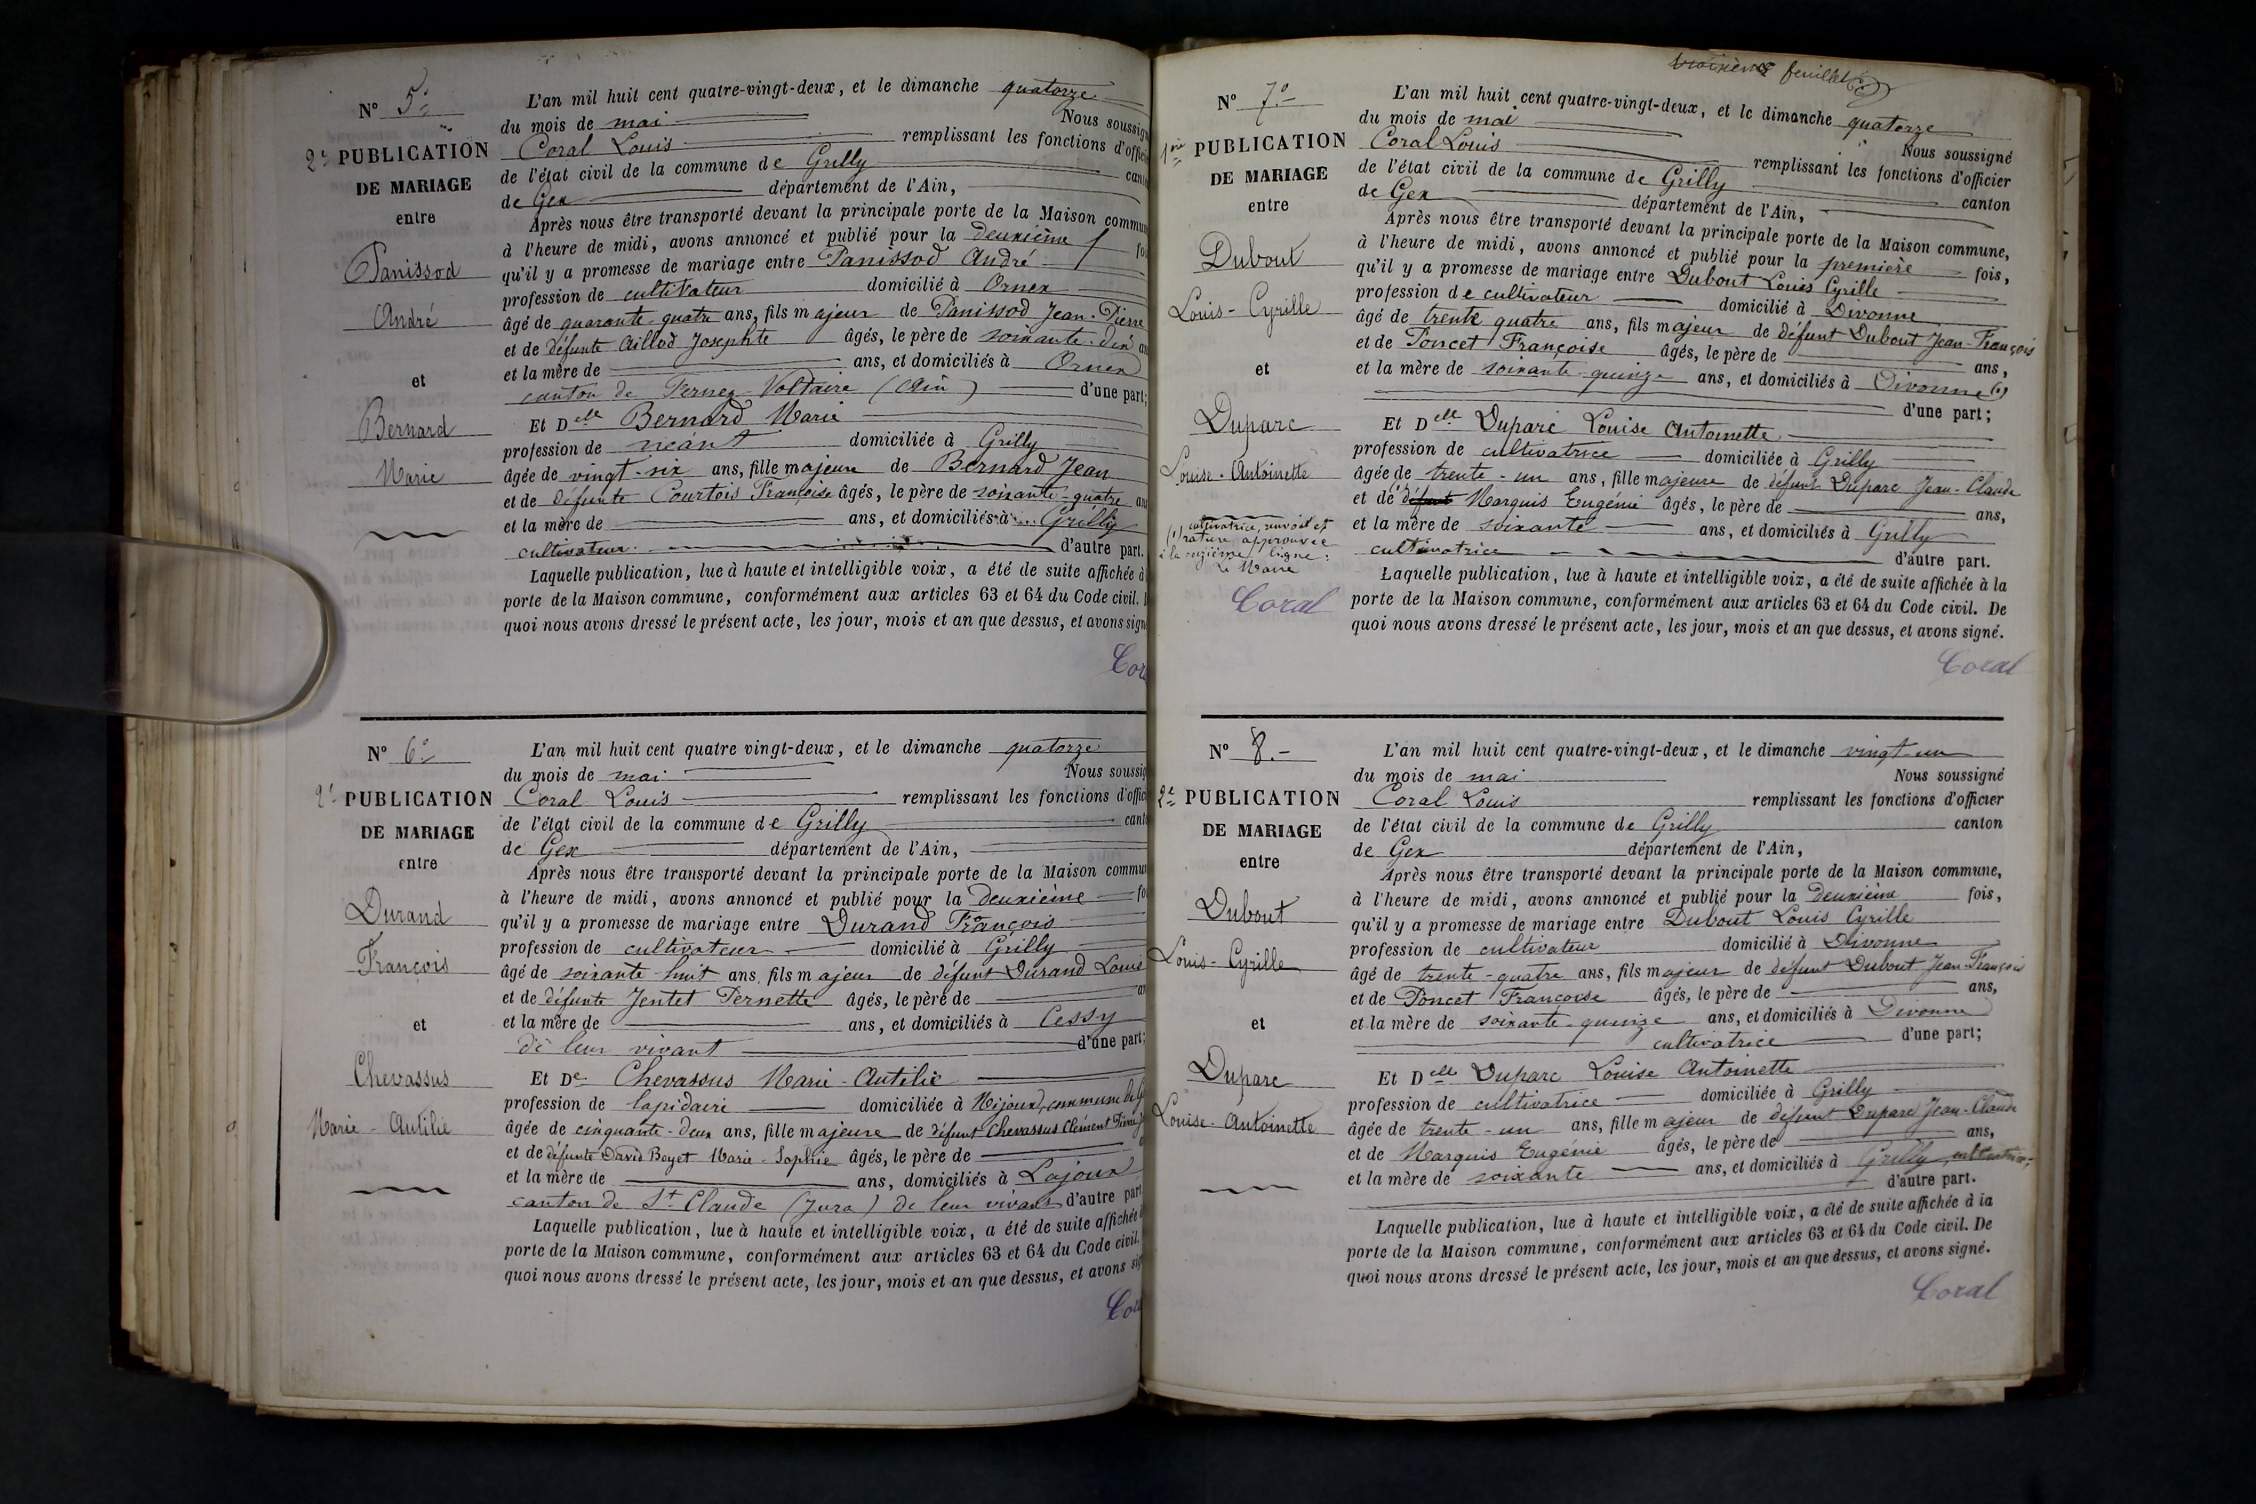 N° 5.
2e PUBLICATION
DE MARIAGE
entre
Panissod
André
et
Bernard
Marie
L'an mil huit cent quatre-vingt-deux, et le dimanche quatorze
du mois de mai Nous soussign
Coral Louis remplissant les fonctions d'offici
de l'état civil de la commune de Grilly cant
de Gex département de l'Ain,
Après nous être transporté devant la principale porte de la Maison commun
à l'heure de midi, avons annoncé et publié pour la deuxième fo
qu'il y a promesse de mariage entre Panissod André
profession de cultivateur domicilié à Ornex
âgé de quarante-quatre ans, fils majeur de Panissod Jean-Pierre
et de défunte Aillod Josephte âgés, le père de soixante-dix an
et la mère de ans, et domiciliés à Ornex
canton de Ferney-Voltaire (Ain) d'une part;
Et Delle Bernard Marie
profession de néant domiciliée à Grilly
âgée de vingt-six ans, fille majeure de Bernard Jean
et de défunte Courtois Françoise âgés, le père de soixante-quatre an
et la mère de ans, et domiciliés à Grilly
cultivateur. d'autre part.
Laquelle publication, lue à haute et intelligible voix, a été de suite affichée à
porte de la Maison commune, conformément aux articles 63 et 64 du Code civil.
quoi nous avons dressé le présent acte, les jour, mois et an que dessus, et avons sign
Cor
N° 6.
2e PUBLICATION
DE MARIAGE
entre
Durand
François
et
Chevassus
Marie-Autilie
L'an mil huit cent quatre vingt-deux, et le dimanche quatorze
du mois de mai Nous soussig
Coral Louis remplissant les fonctions d'offic
de l'état civil de la commune de Grilly cant
de Gex département de l'Ain,
Après nous être transporté devant la principale porte de la Maison commun
à l'heure de midi, avons annoncé et publié pour la deuxième fo
qu'il y a promesse de mariage entre Durand François
profession de cultivateur domicilié à Grilly
âgé de soixante-huit ans, fils majeur de défunt Durand Louis
et de défunte Jentet Pernette âgés, le père de an
et la mère de ans, et domiciliés à Cessy
de leur vivant d'une part;
Et De Chevassus Marie-Autilie
profession de lapidaire domiciliée à Mijoux, commune de
âgée de cinquante-deux ans, fille majeure de défunt Chevassus Clément Pierre
et de défunte David Boyet Marie-Sophie âgés, le père de
et la mère de ans, domiciliés à Lajoux
canton de St Claude (Jura) de leur vivant d'autre part
Laquelle publication, lue à haute et intelligible voix, a été de suite affichée
porte de la Maison commune, conformément aux articles 63 et 64 du Code civil.
quoi nous avons dressé le présent acte, les jour, mois et an que dessus, et avons sig
Cor
troisième feuillet
N° 7.
1ère PUBLICATION
DE MARIAGE
entre
Dubout
Louis-Cyrille
et
Duparc
Louise-Antoinette
(1) cultivatrice, renvoi et
rature approuvée
à la onzième ligne:
Le Maire
Coral
L'an mil huit cent quatre-vingt-deux, et le dimanche quatorze
du mois de mai Nous soussigné
Coral Louis remplissant les fonctions d'officier
de l'état civil de la commune de Grilly canton
de Gex département de l'Ain,
Après nous être transporté devant la principale porte de la Maison commune,
à l'heure de midi, avons annoncé et publié pour la première fois,
qu'il y a promesse de mariage entre Dubout Louis Cyrille
profession de cultivateur domicilié à Divonne
âgé de trente quatre ans, fils majeur de défunt Dubout Jean-François
et de Poncet Françoise âgés, le père de ans,
et la mère de soixante-quinze ans, et domiciliés à Divonne (1)
d'une part;
Et Delle Duparc Louise Antoinette
profession de cultivatrice domiciliée à Grilly
âgée de trente-un ans, fille majeure de défunt Duparc Jean-Claude
et de défunt Marquis Eugénie âgés, le père de ans,
et la mère de soixante ans, et domiciliés à Grilly
cultivatrice d'autre part.
Laquelle publication, lue à haute et intelligible voix, a été de suite affichée à la
porte de la Maison commune, conformément aux articles 63 et 64 du Code civil. De
quoi nous avons dressé le présent acte, les jour, mois et an que dessus, et avons signé.
Coral
N° 8.
2e PUBLICATION
DE MARIAGE
entre
Dubout
Louis-Cyrille
et
Duparc
Louise-Antoinette
L'an mil huit cent quatre-vingt-deux, et le dimanche vingt-un
du mois de mai Nous soussigné
Coral Louis remplissant les fonctions d'officier
de l'état civil de la commune de Grilly canton
de Gex département de l'Ain,
Après nous être transporté devant la principale porte de la Maison commune,
à l'heure de midi, avons annoncé et publié pour la deuxième fois,
qu'il y a promesse de mariage entre Dubout Louis Cyrille
profession de cultivateur domicilié à Divonne
âgé de trente-quatre ans, fils majeur de défunt Dubout Jean-François
et de Poncet Françoise âgés, le père de ans,
et la mère de soixante-quinze ans, et domiciliés à Divonne
cultivatrice d'une part;
Et Delle Duparc Louise Antoinette
profession de cultivatrice domiciliée à Grilly
âgée de trente-un ans, fille majeur de défunt Duparc Jean-Claude
et de Marquis Eugénie âgés, le père de ans,
et la mère de soixante ans, et domiciliés à Grilly cultivatrice;
d'autre part.
Laquelle publication, lue à haute et intelligible voix, a été de suite affichée à la
porte de la Maison commune, conformément aux articles 63 et 64 du Code civil. De
quoi nous avons dressé le présent acte, les jour, mois et an que dessus, et avons signé.
Coral